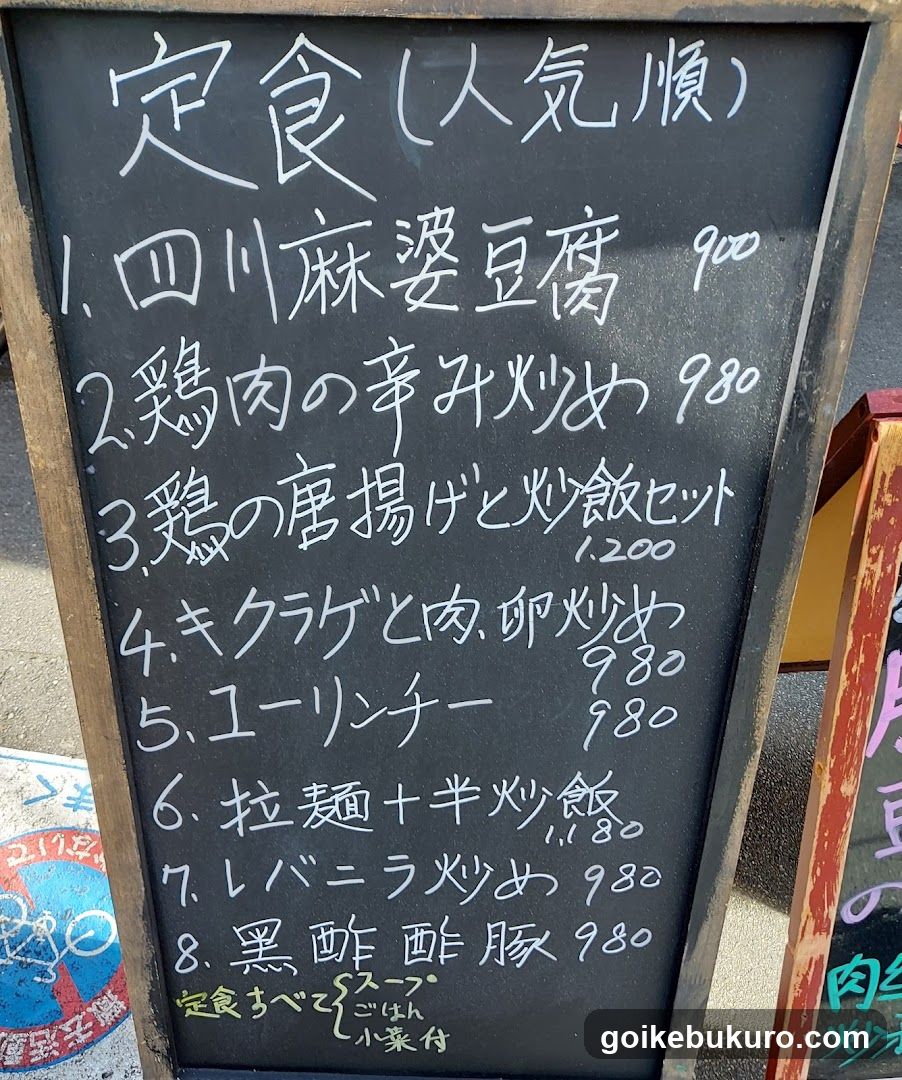 定食(人気順)
1.四川麻婆豆腐 900
2.鶏肉の辛み炒め 980
3.鶏の唐揚げと炒飯セット
1.200
4.キクラゲと肉、卵炒め
980
5.ユーリンチー 980
6.拉麺+半炒飯
1,180
7.レバニラ炒め 980
8.黒酢酢豚 980
定食すべて{スープ
ごはん
小菜付
豆の
肉
goikebukuro.com